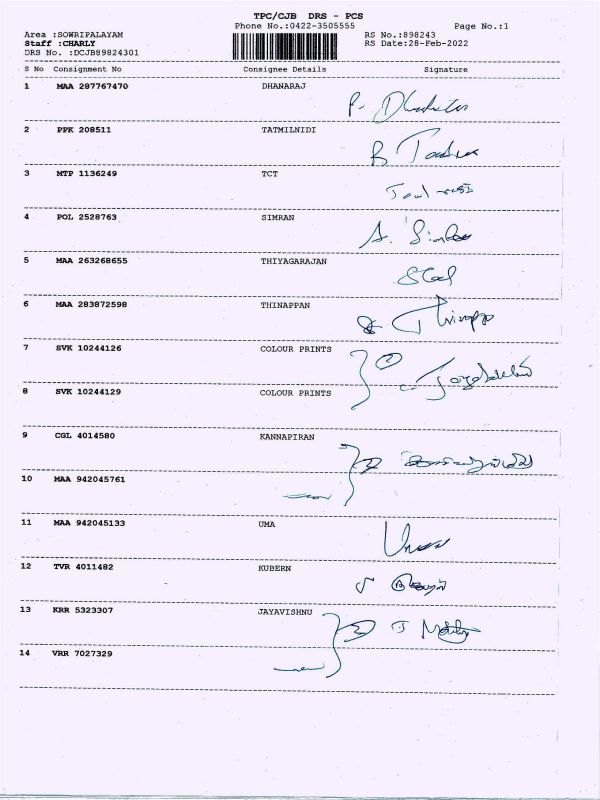 TPC/CJB DRS - PCS
Phone No.:0422-3505555 Page No.:1
Area :SOWRIPALAYAM RS No.:898243
Staff :CHARLY RS Date:28-Feb-2022
DRS No. :DCJB89824301
S No Consignment No Consignee Details Signature
1 MAA 287767470 DHANARAJ
2 PPK 208511 TATMILNIDI
3 MTP 1136249 TCT
4 POL 2528763 SIMRAN
5 MAA 263268655 THIYAGARAJAN
6 MAA 283872598 THINAPPAN
7 SVK 10244126 COLOUR PRINTS
8 SVK 10244129 COLOUR PRINTS
9 CGL 4014580 KANNAPIRAN
10 MAA 942045761
11 MAA 942045133 UMA
12 TVR 4011482 KUBERN
13 KRR 5323307 JAYAVISHNU
14 VRR 7027329